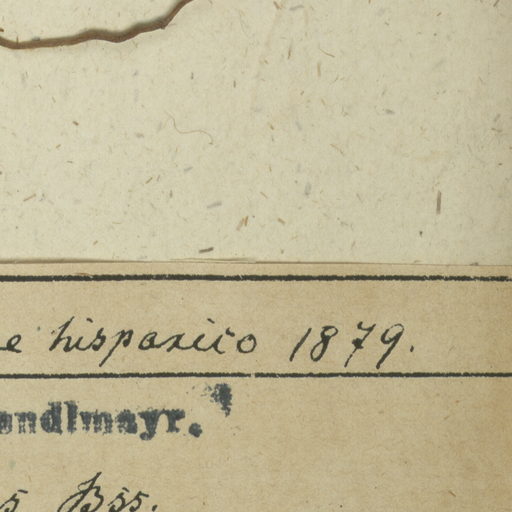 e hispanico 1879.
andlmayr.
s Bss.